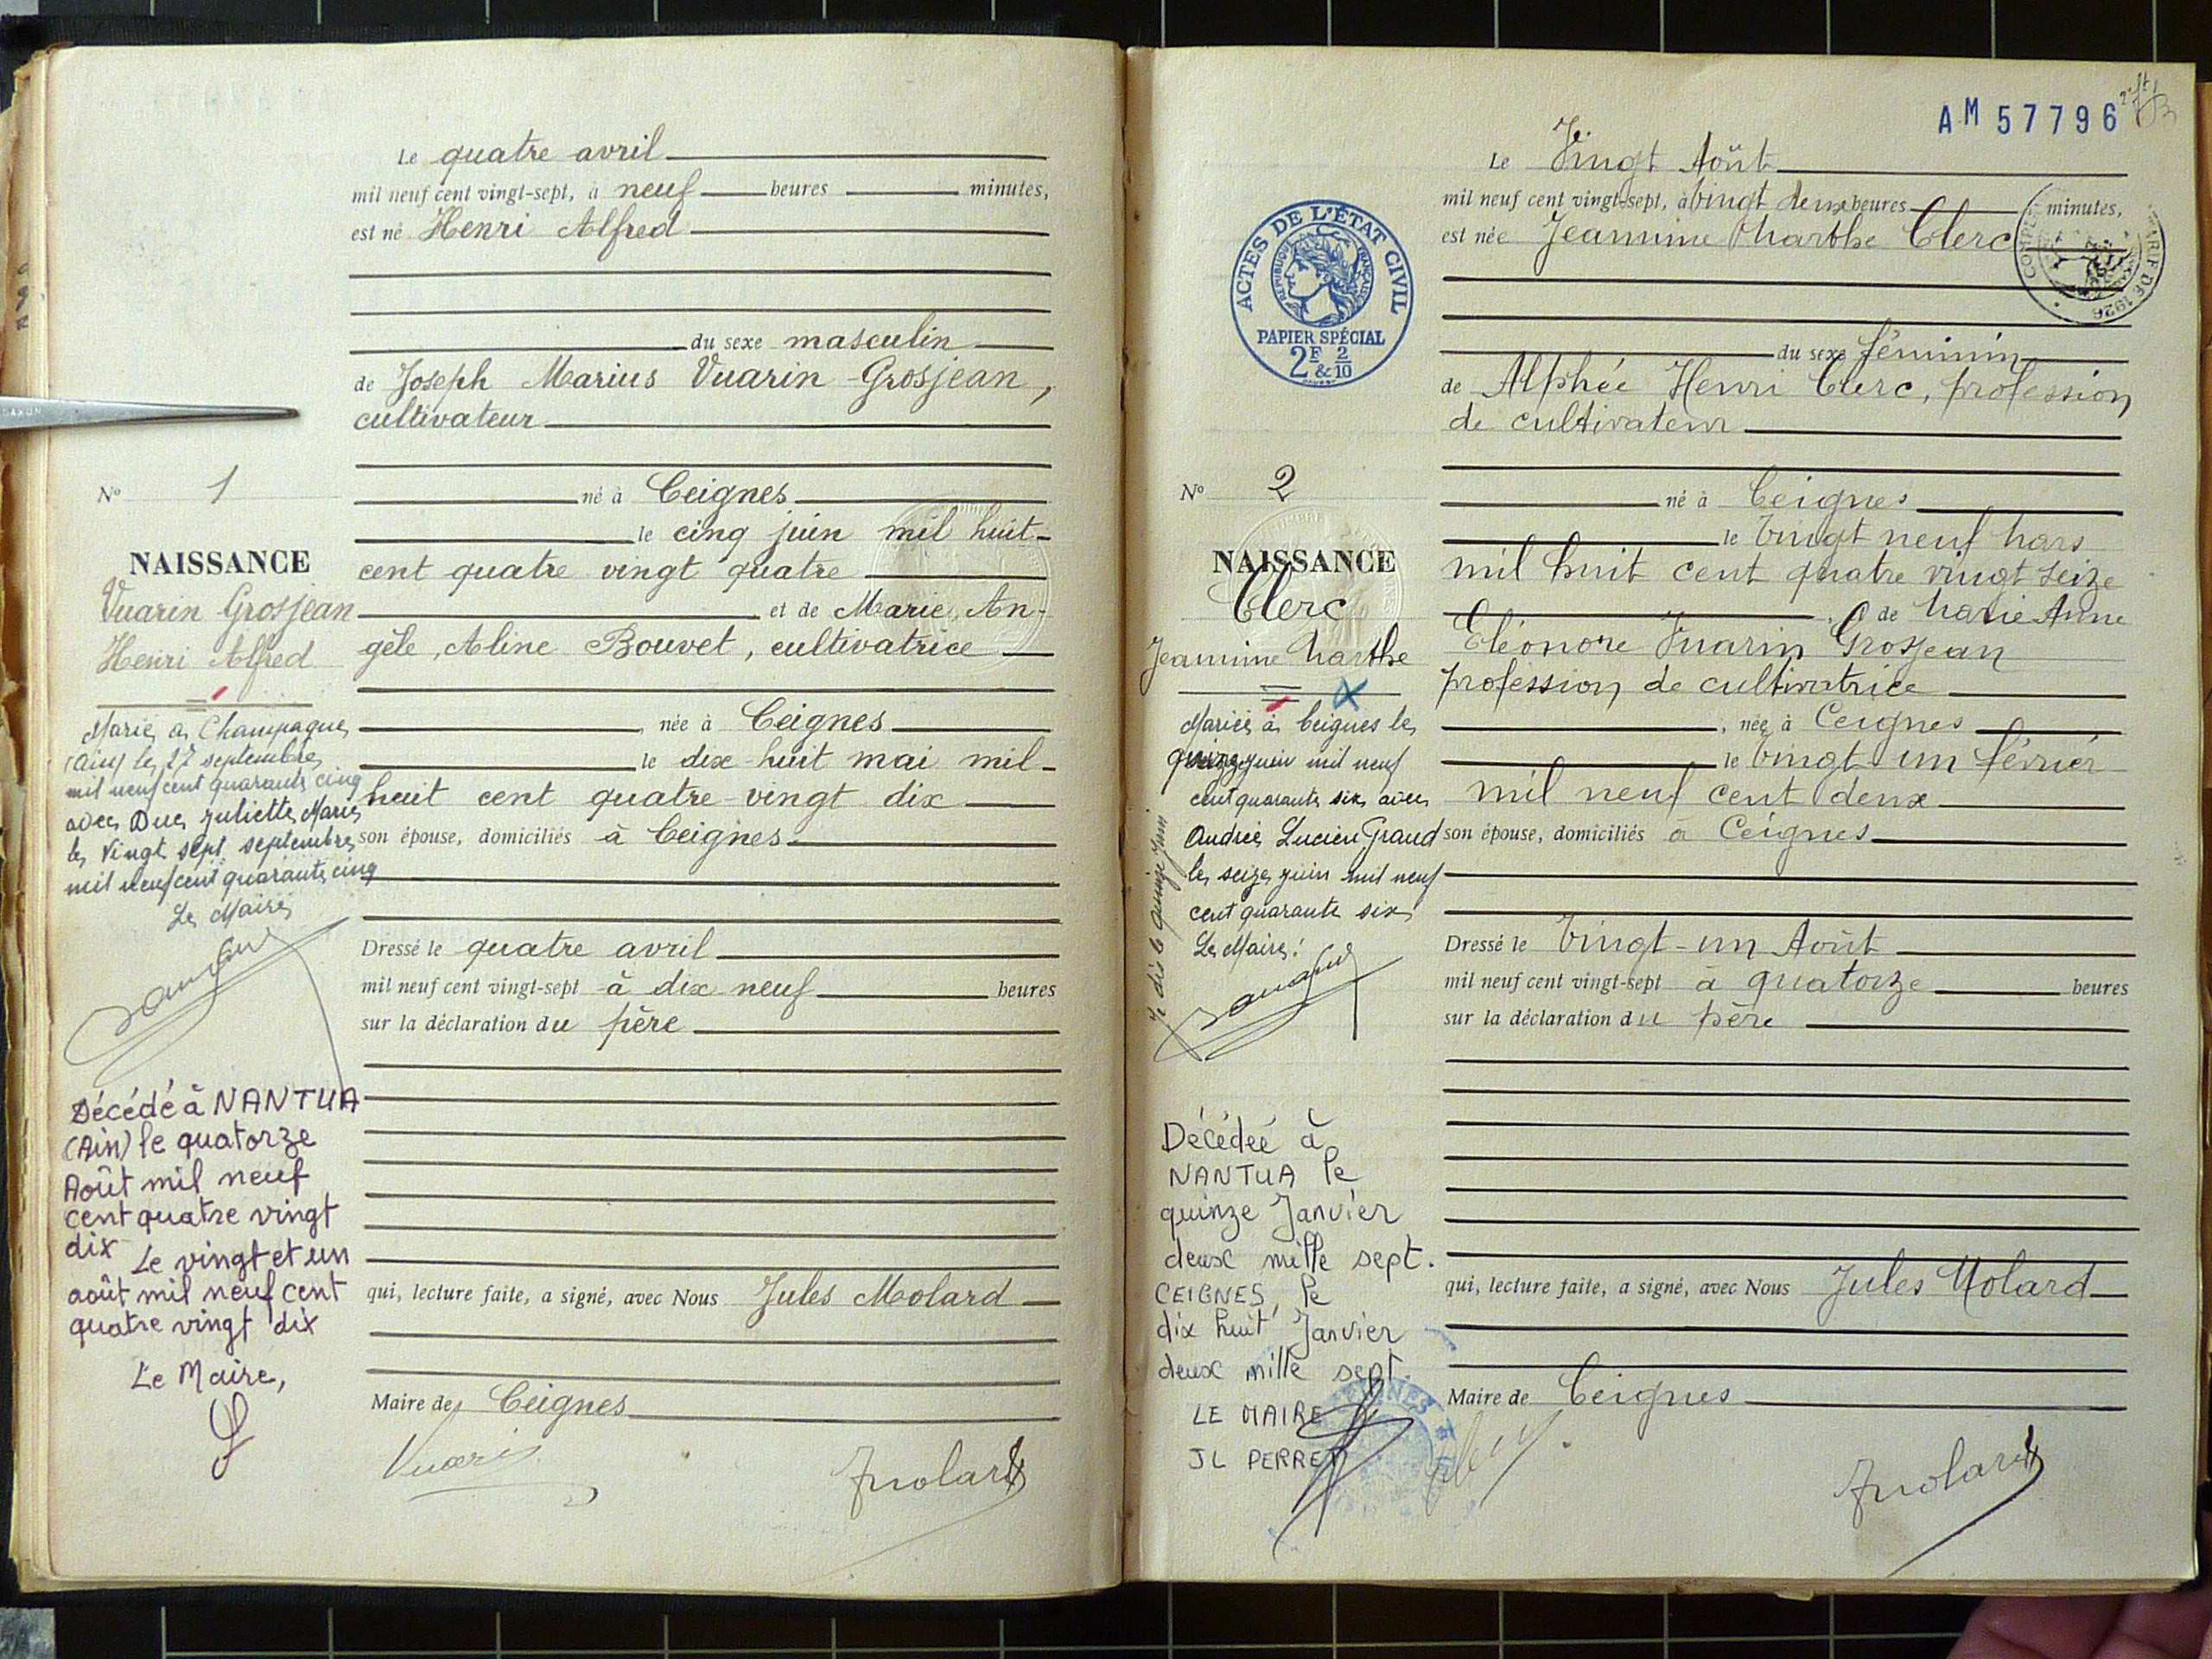 Le quatre avril
mil neuf cent vingt-sept, à neuf heures minutes,
est né Henri Alfred
du sexe masculin
de Joseph Marius Vuarin-Grosjean,
cultivateur
né à Ceignes
le cinq juin mil huit-
cent quatre vingt quatre
et de Marie, An-
gèle, Aline Bouvet, cultivatrice
née à Ceignes
le dix-huit mai mil-
huit cent quatre-vingt dix
son épouse, domiciliés à Ceignes
Dressé le quatre avril
mil neuf cent vingt-sept à dix-neuf heures
sur la déclaration du père
qui, lecture faite, a signé, avec Nous Jules Molard
Maire de Ceignes
Vuarin
JMolard
N° 1
NAISSANCE
Vuarin Grosjean
Henri Alfred
Marié à Champagne
(Ain) le 27 septembre
mil neuf cent quarante cinq
avec Juliette Marie
le vingt sept septembre
mil neuf cent quarante cinq
Le Maire
Décédé à NANTUA
(Ain) le quatorze
Août mil neuf
cent quatre vingt
dix Le vingt et un
août mil neuf cent
quatre vingt dix
Le Maire,
AM 57796
Le Vingt Août
mil neuf cent vingt-sept, à vingt deux heures minutes,
est née Jeannine Marthe Clerc
du sexe féminin
de Alphée Henri Clerc, profession
de cultivateur
né à Ceignes
le vingt neuf Mars
mil huit cent quatre vingt seize
de Marie Anne
Eléonore Vuarin Grosjean
profession de cultivatrice
née à Ceignes
le vingt-un février
mil neuf cent deux
son épouse, domiciliés à Ceignes
Dressé le Vingt-un Août
mil neuf cent vingt-sept à quatorze heures
sur la déclaration du père
qui, lecture faite, a signé, avec Nous Jules Molard
Maire de Ceignes
JMolard
ACTES DE L'ÉTAT CIVIL
RÉPUBLIQUE FRANÇAISE
PAPIER SPÉCIAL
2F & 2/10
TARIF DE 1926
N° 2
NAISSANCE
Clerc
Jeannine Marthe
Mariée à Ceignes le
juin mil neuf
cent quarante six avec
André Lucien Graud
le seize juin mil neuf
cent quarante six
Le Maire:
Je dis le quinze juin
Décédée à
NANTUA le
quinze Janvier
deux mille sept.
CEIGNES, le
dix huit Janvier
deux mille sept
LE MAIRE
JL PERRET